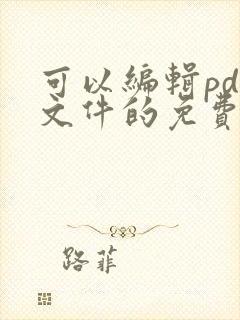 可以編輯pd
文件的免費
路菲